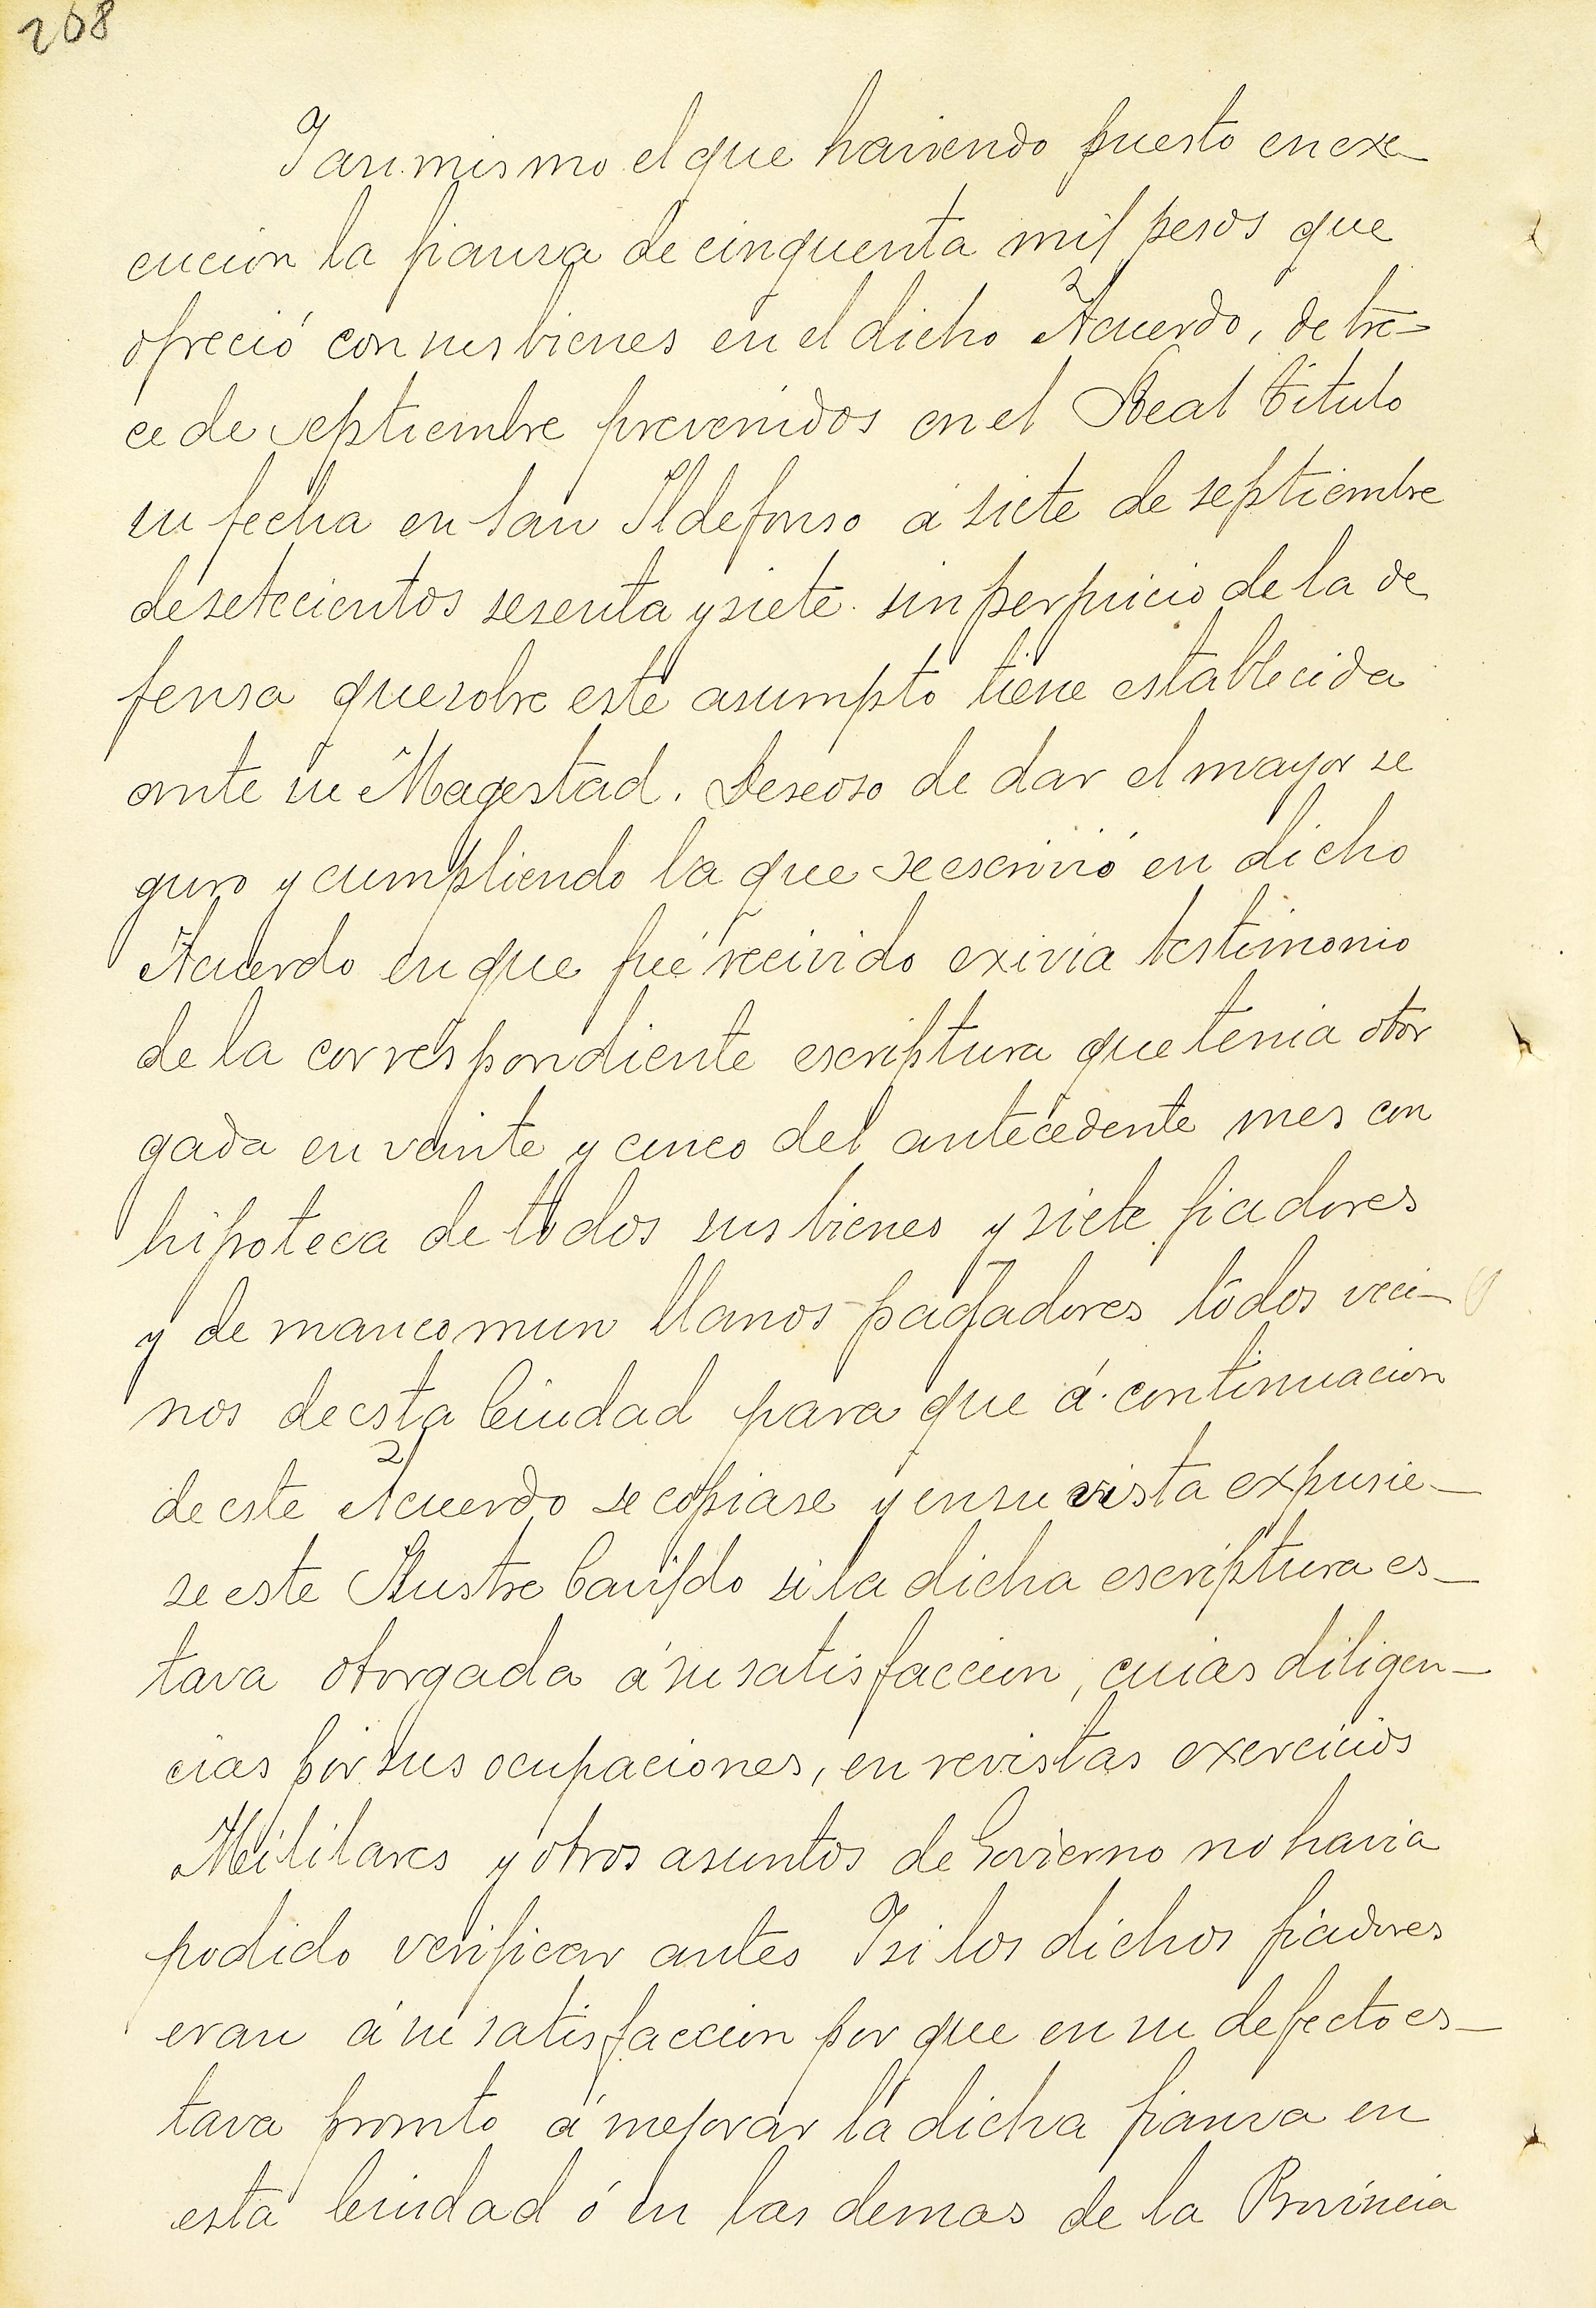 268
Iasi mismo el que haviendo puesto en exe
cucion la fianza de cinquenta mil pesos que
ofreció con sus bienes en el dicho Acuerdo, de tre-
ce de septiembre prevenidos en el Real titulo
su fecha en San Ildefonso á siete de septiembre
desetecientos sesenta y siete sin perjuicio de la de
fensa que sobre este asumpto tiene establecida
ante su Magestad. Deseoso de dar el mayor se
guro y cumpliendo la que se escrivió en dicho
Acuerdo en que fué recivido exivia testimonio
de la correspondiente escriptura que tenia otor
gada en veinte y cinco del antecedente mes con
hipoteca de todos sus bienes y siete fiadores
y de mancomun llanos pagadores todos veci-
nos de esta Ciudad para que á continuacion
de este Acuerdo se copiase y en su vista expusie-
se este Ilustre Cavildo si la dicha escriptura es-
tava otorgada á su satisfaccion, cuias diligen-
cias por sus ocupaciones, en revistas exercicios
Militares y otros asuntos de Govierno no havia
podido verificar antes I si los dichos fiadores
eran á su satisfaccion por que en su defecto es-
tava pronto á mejorar la dicha fianza en
esta Ciudad ó en las demas de la Provincia